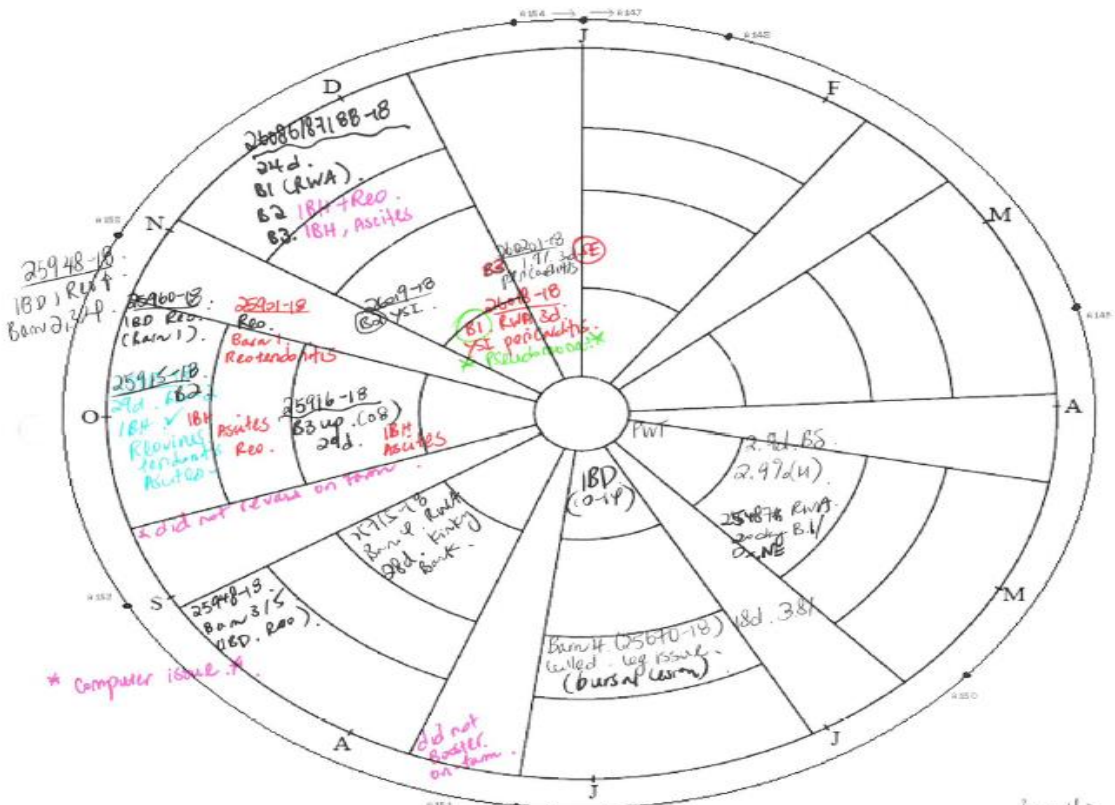 A154 → → A147
J
A148
F
M
A149
A
M
A150
J
J
A
S
A152
O
N
A153
D
26086/87/88-18
24d.
B1 (RWA).
B2 IBH + Reo.
B3. IBH, Ascites
25948-18
IBD, Reo
Barn 2,3,4.
25960-18.
IBD Reo.
(Barn 1).
25921-18
Reo.
Barn 1
Reotendonitis
26019-18
B2 YSI.
B3
3d
SE
pericarditis
26018-18
B1 RWA 3d.
YSI pericarditis.
* Pseudomonas *
25915-18
B2
29d.
IBH ✓
Reovirus
tendonitis
Ascites
IBH
Ascites
Reo.
25916-18
B3 up. (08)
29d.
IBH
Ascites
* did not revacc on farm
25715-18
Barn 4. RWA
28d. Kinky
Back.
25948-18.
Barn 3/5
(IBD. Reo).
* Computer issue. *
did not
Booster
on-farm.
IBD
(0-14)
PWT
2.9d. BS
2.97d(H)
RWA.
Barn 4. (25670-18)
culled. leg issue.
(bursal lesion)
18d. 3.81